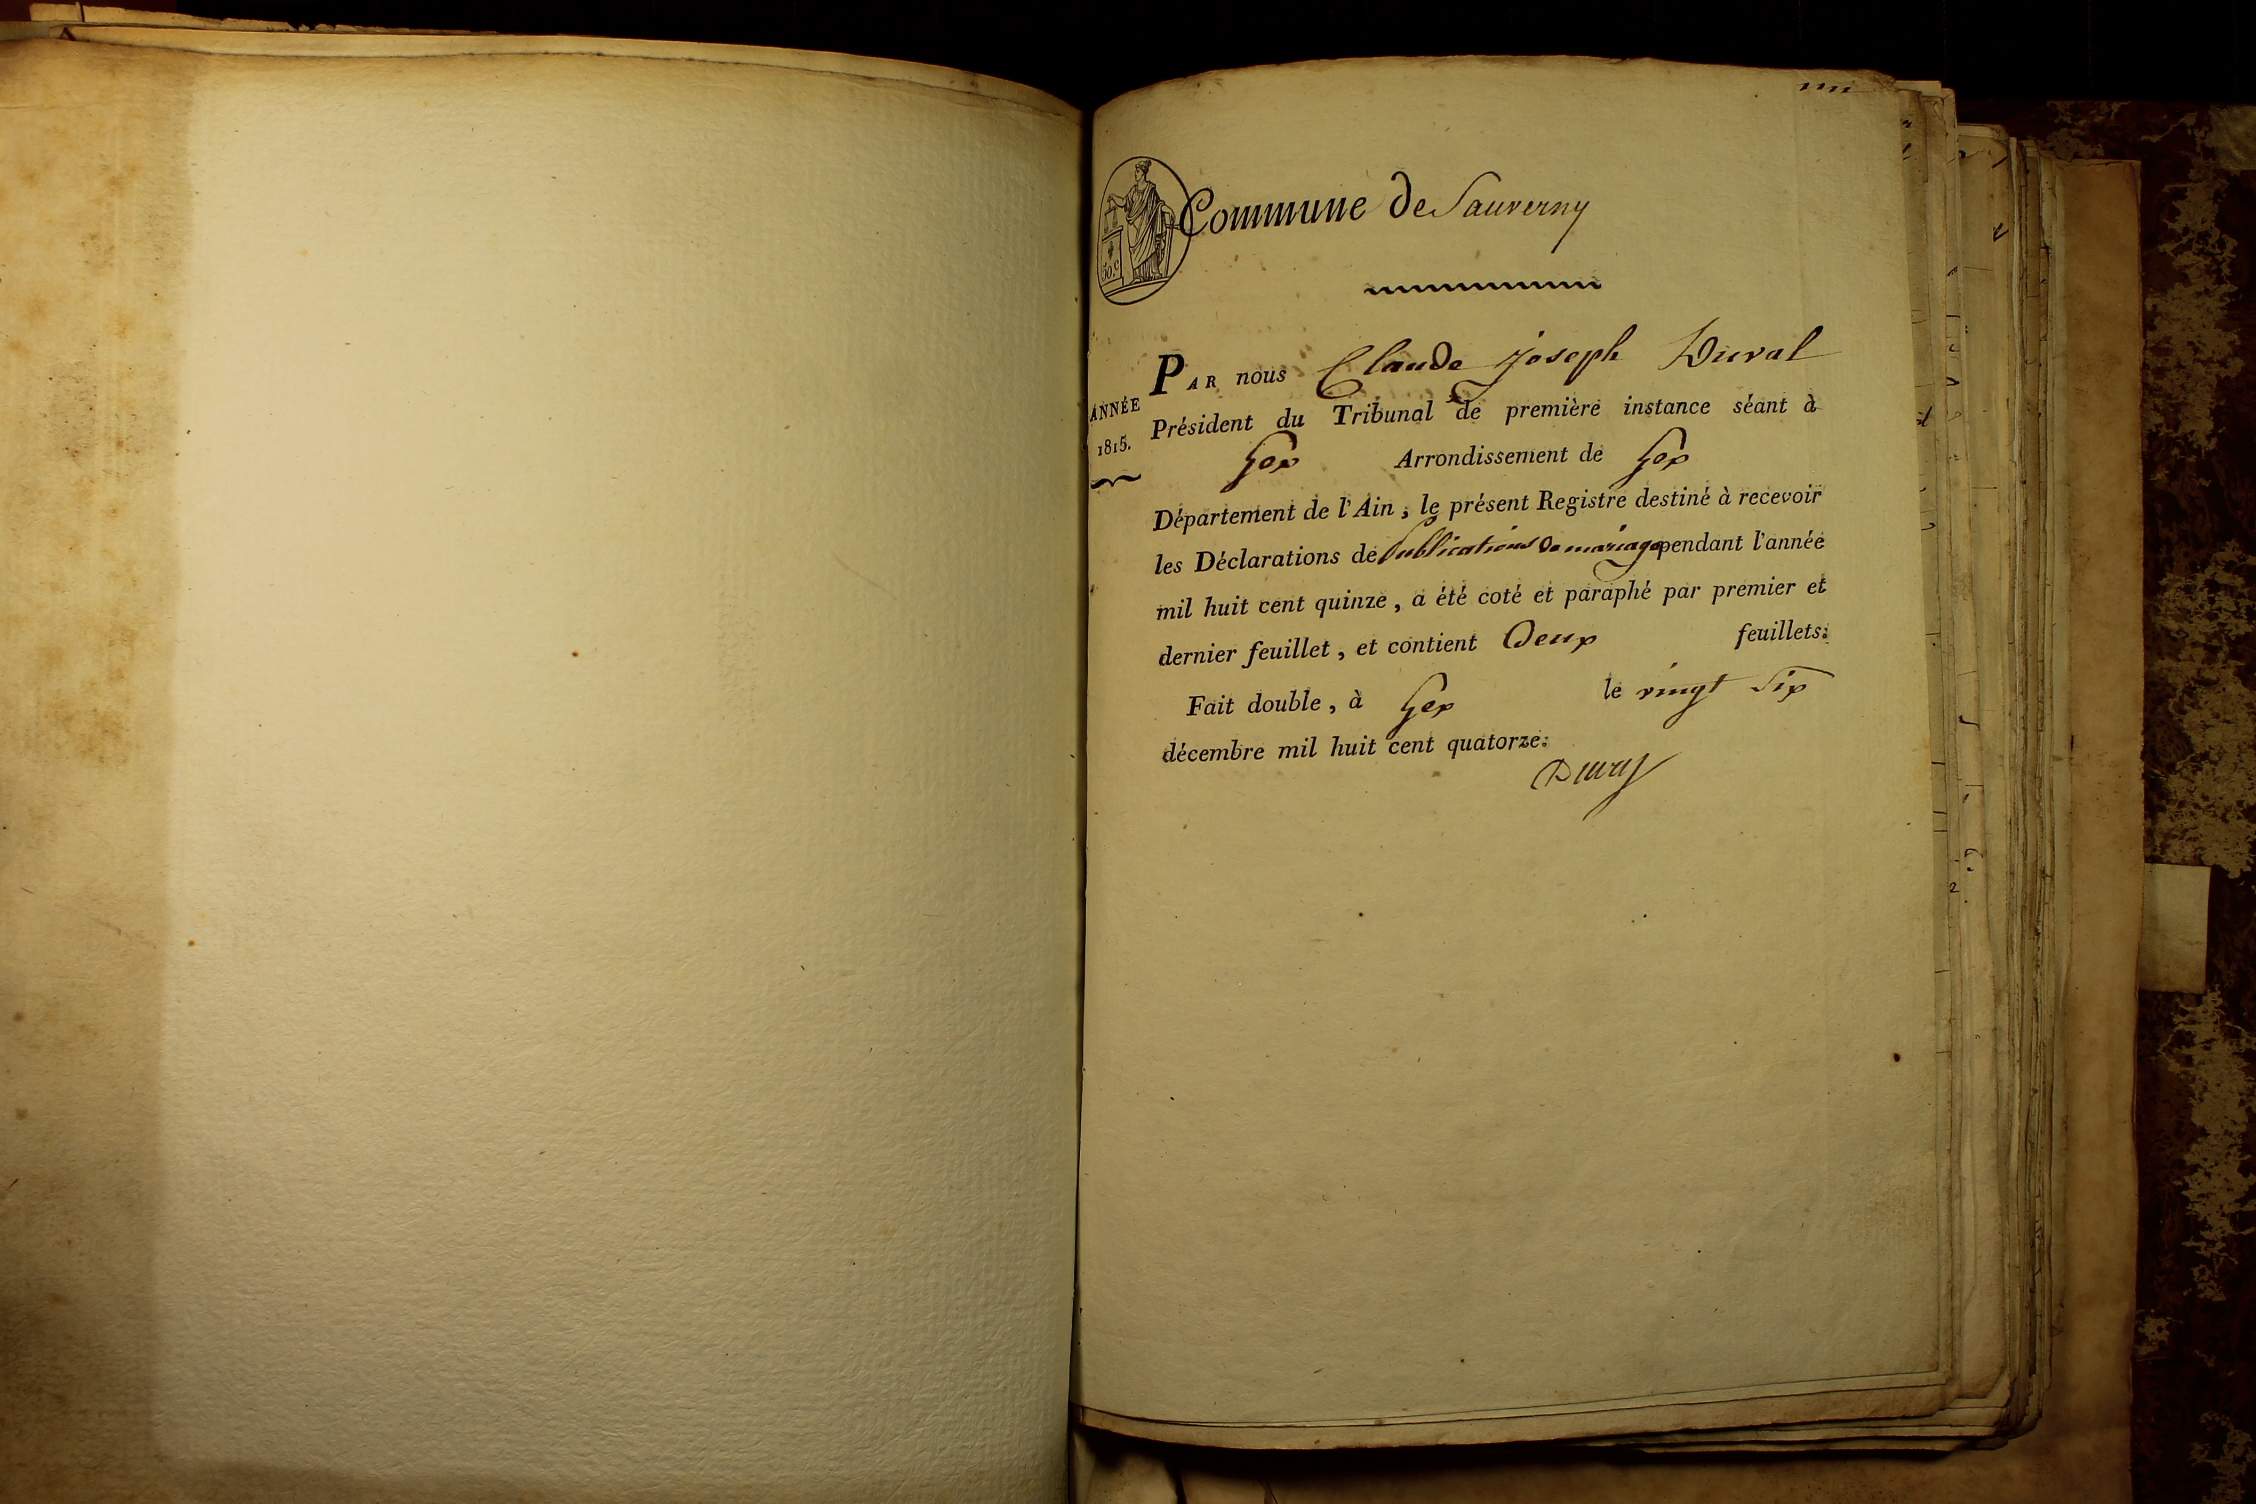 Commune de Sauverny
50.c
PAR nous Claude Joseph Duval
ANNÉE
1815.
Président du Tribunal de première instance séant à
Gex Arrondissement de Gex
Département de l'Ain, le présent Registre destiné à recevoir
les Déclarations de Publications de mariage pendant l'année
mil huit cent quinze, a été coté et paraphé par premier et
dernier feuillet, et contient Deux feuillets.
Fait double, à Gex le vingt Six
décembre mil huit cent quatorze.